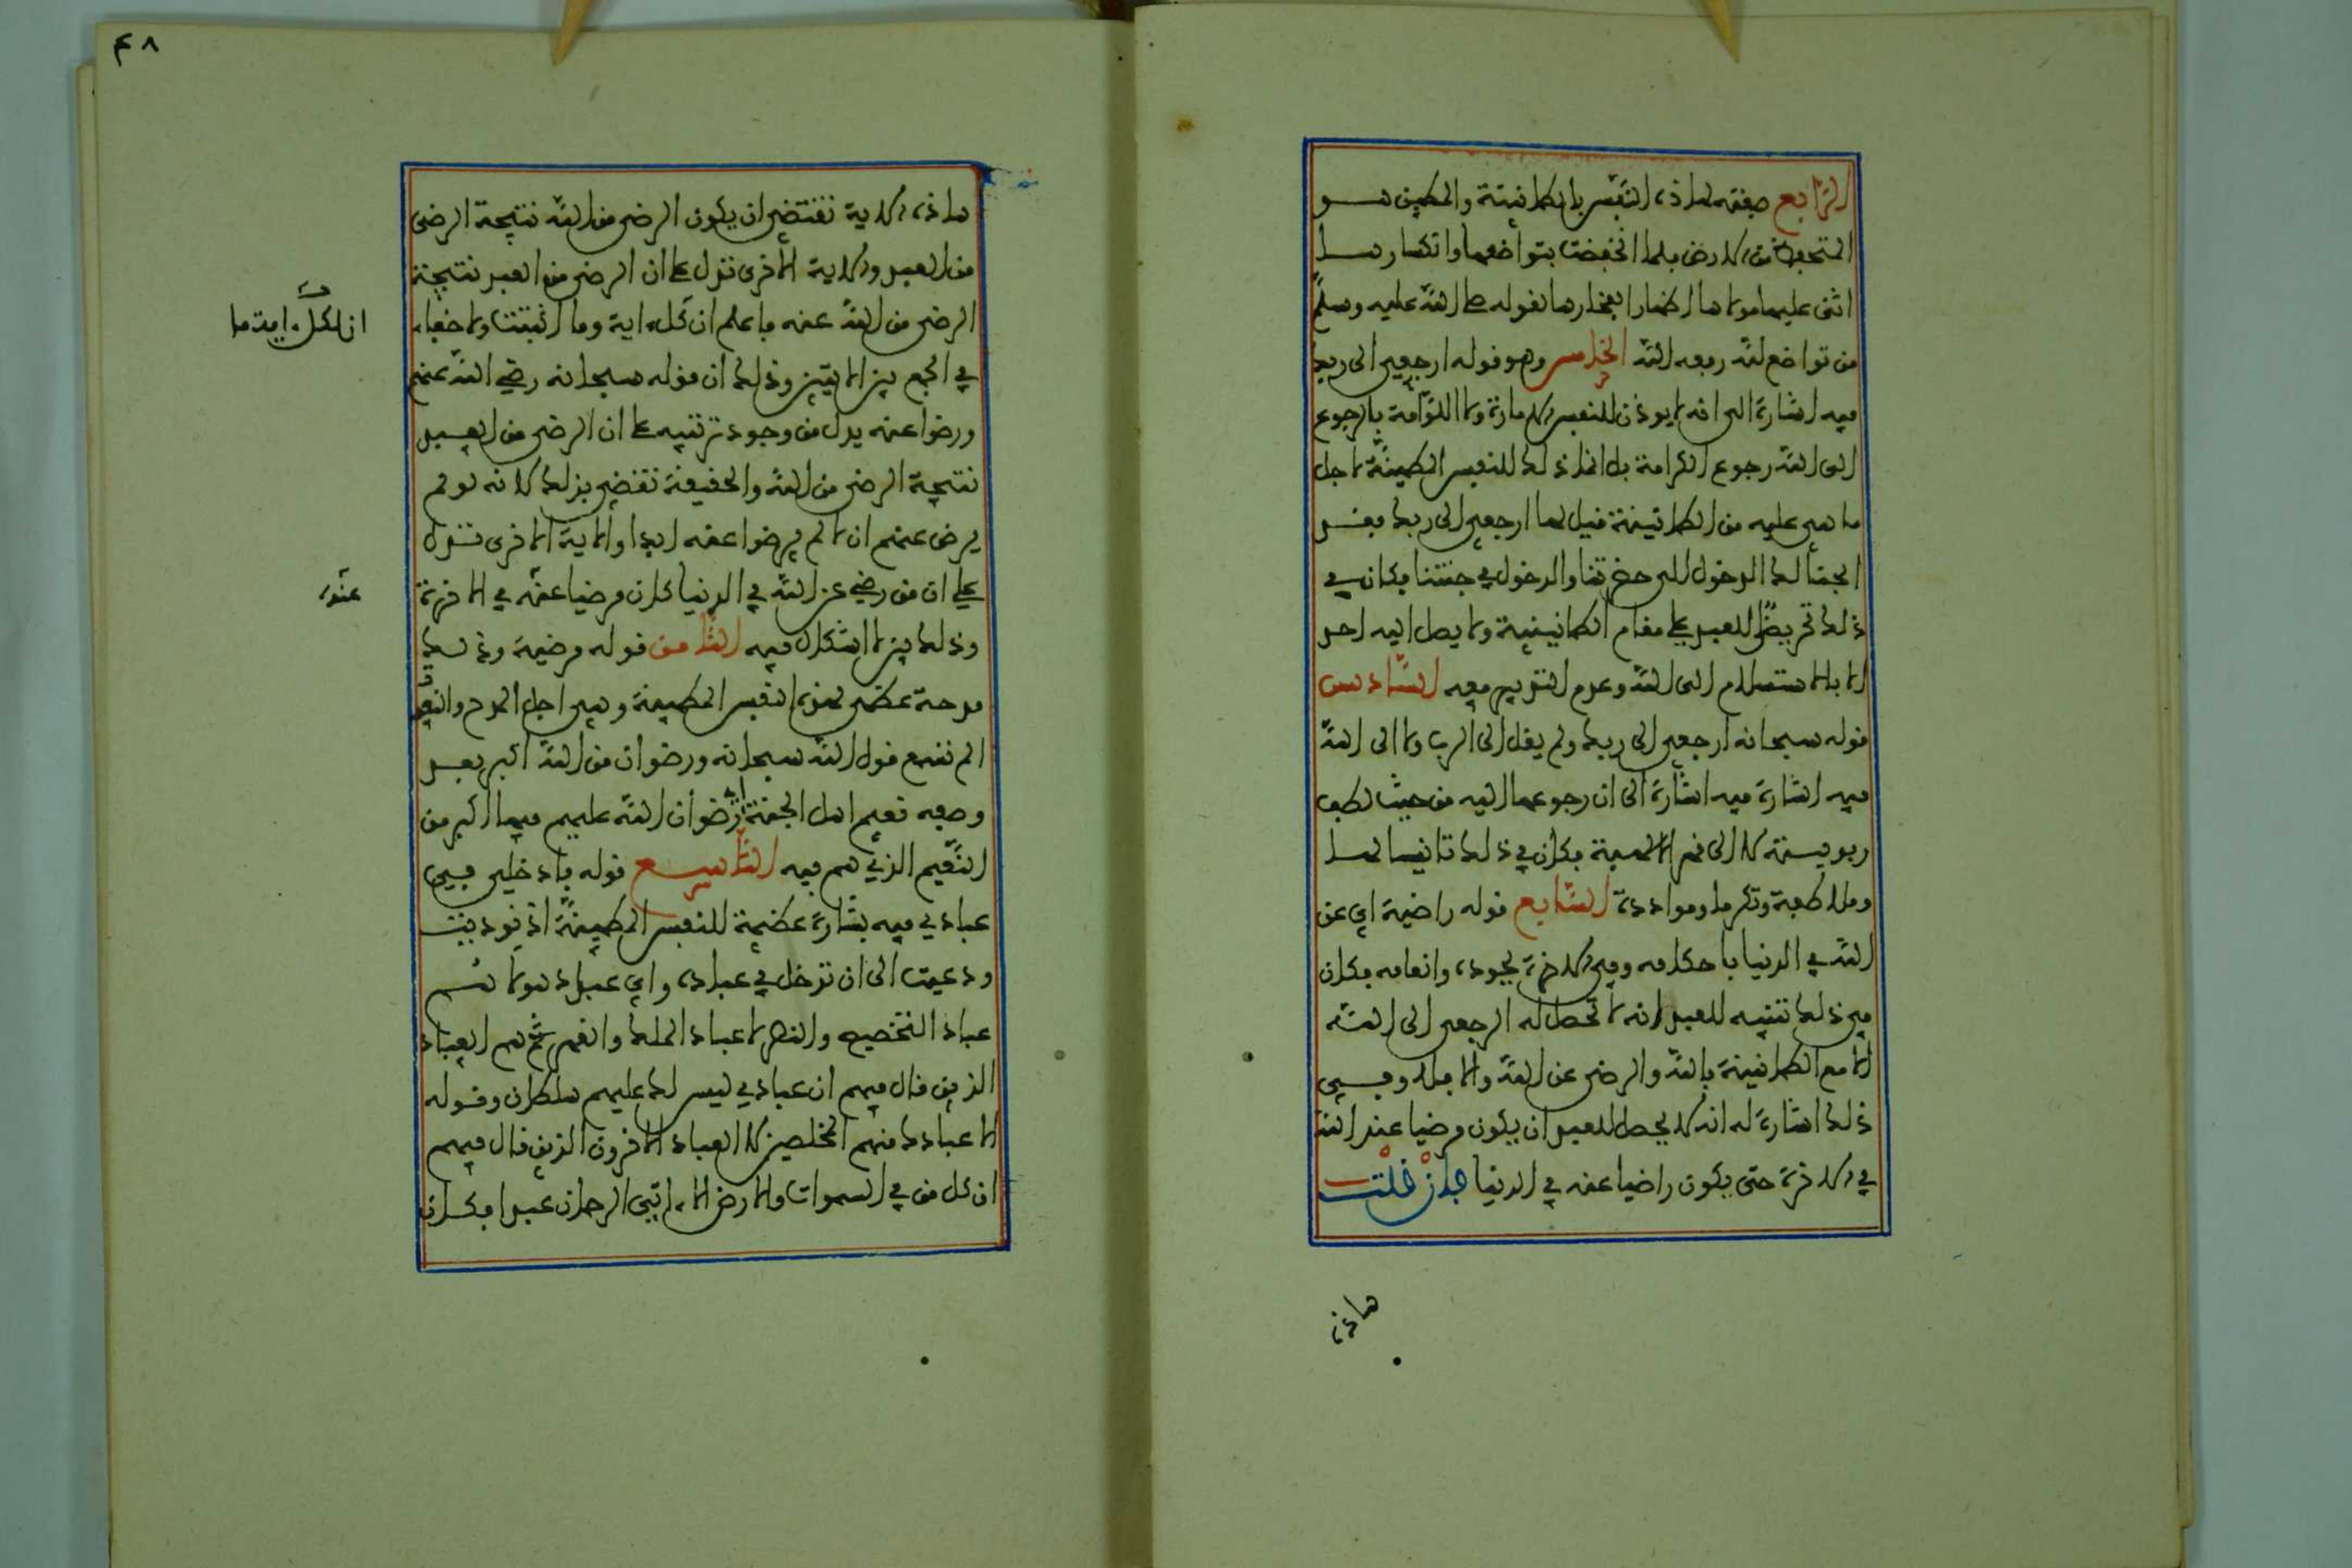 الرابع صفته لهاذه النفس بالطمانينة والمطمين هو
المنخفض من الارض فلما انخفضت بتواضعها وانكسارها
اثنى عليها مولاها اظهارا لفخارها لقوله صلى الله عليه وسلم
من تواضع لله رفعه الله الخامس وهو قوله ارجعي الى ربك
فيه اشارة الى انه لا يوذن للنفس الامارة ولا اللوامة بالرجوع
الى الله رجوع الكرامة بل انما ذلك للنفس المطمينة لاجل
ما هي عليه من الطمانينة قيل لها ارجعي الى ربك فقد
ابحنا لك الدخول الى حضرتنا والدخول في جنتنا فكان في
ذلك تحريض للعبد على مقام الطمانينة ولا يصل اليه احد
الا بالاستسلام الى الله وعدم التدبير معه السادس
قوله سبحانه ارجعي الى ربك ولم يقل الى الرب ولا الى الله
فيه اشارة فيه اشارة الى ان رجوعها اليه من حيث لطف
ربوبيته لا الى قهر الاهيته فكان في ذلك تانيسا لها
وملاطفة وتكرما وموادده السابع قوله راضية اي عن
الله في الدنيا باحكامه وفي الاخرة بجوده وانعامه فكان
في ذلك تنبيه للعبد انه لا تحصل له الرجعى الى الله
الا مع الطمانينة بالله والرضى عن الله والا فلا وفي
ذلك اشارة له انه لا يحصل للعبد ان يكون مرضيا عند الله
في الاخرة حتى يكون راضيا عنه في الدنيا فان قلت
هاذه
٤٨
هاذه الاية تقتضي ان يكون الرضى من الله نتيجة الرضى
من العبد والاية الاخرى تدل على ان الرضى من العبد نتيجة
الرضى من الله عنه فاعلم ان كل اية وما اثبتت ولا خفاء
في الجمع بين الايتين وذلك ان قوله سبحانه رضي الله عنهم
ورضوا عنه يدل من وجود ترتيبه على ان الرضى من العبد
نتيجة الرضى من الله والحقيقة تقضي بذلك لانه لو لم
يرض عنهم اولا لم يرضوا عنه ابدا والاية الاخرى تدل
على ان من رضي عن الله في الدنيا كان مرضيا عنه في الاخرة
وذلك بين لا اشكال فيه الثامن قوله مرضية وذلك
مدحة عظمى لهذه النفس المطمينة وهي اجل المدح والنعوت
الم تسمع قول الله سبحانه ورضوان من الله اكبر بعد
وصفه نعيم اهل الجنة اي رضوان الله عليهم فيها اكبر من
النعيم الذي هم فيه التاسع قوله فادخلي في
عبادي فيه بشارة عظيمة للنفس المطمينة اذ نوديت
ودعيت الى ان تدخل في عباده واي عباد هولاء هم
عباد التخصيص والنصر لا عباد الملك والقهر هم العباد
الذين قال فيهم ان عبادي ليس لك عليهم سلطان وقوله
الا عبادك منهم المخلصين لا العباد الاخرون الذين قال فيهم
ان كل من في السموات والارض الا اتي الرحمان عبدا فكان
ان لكل اية ما
عنده